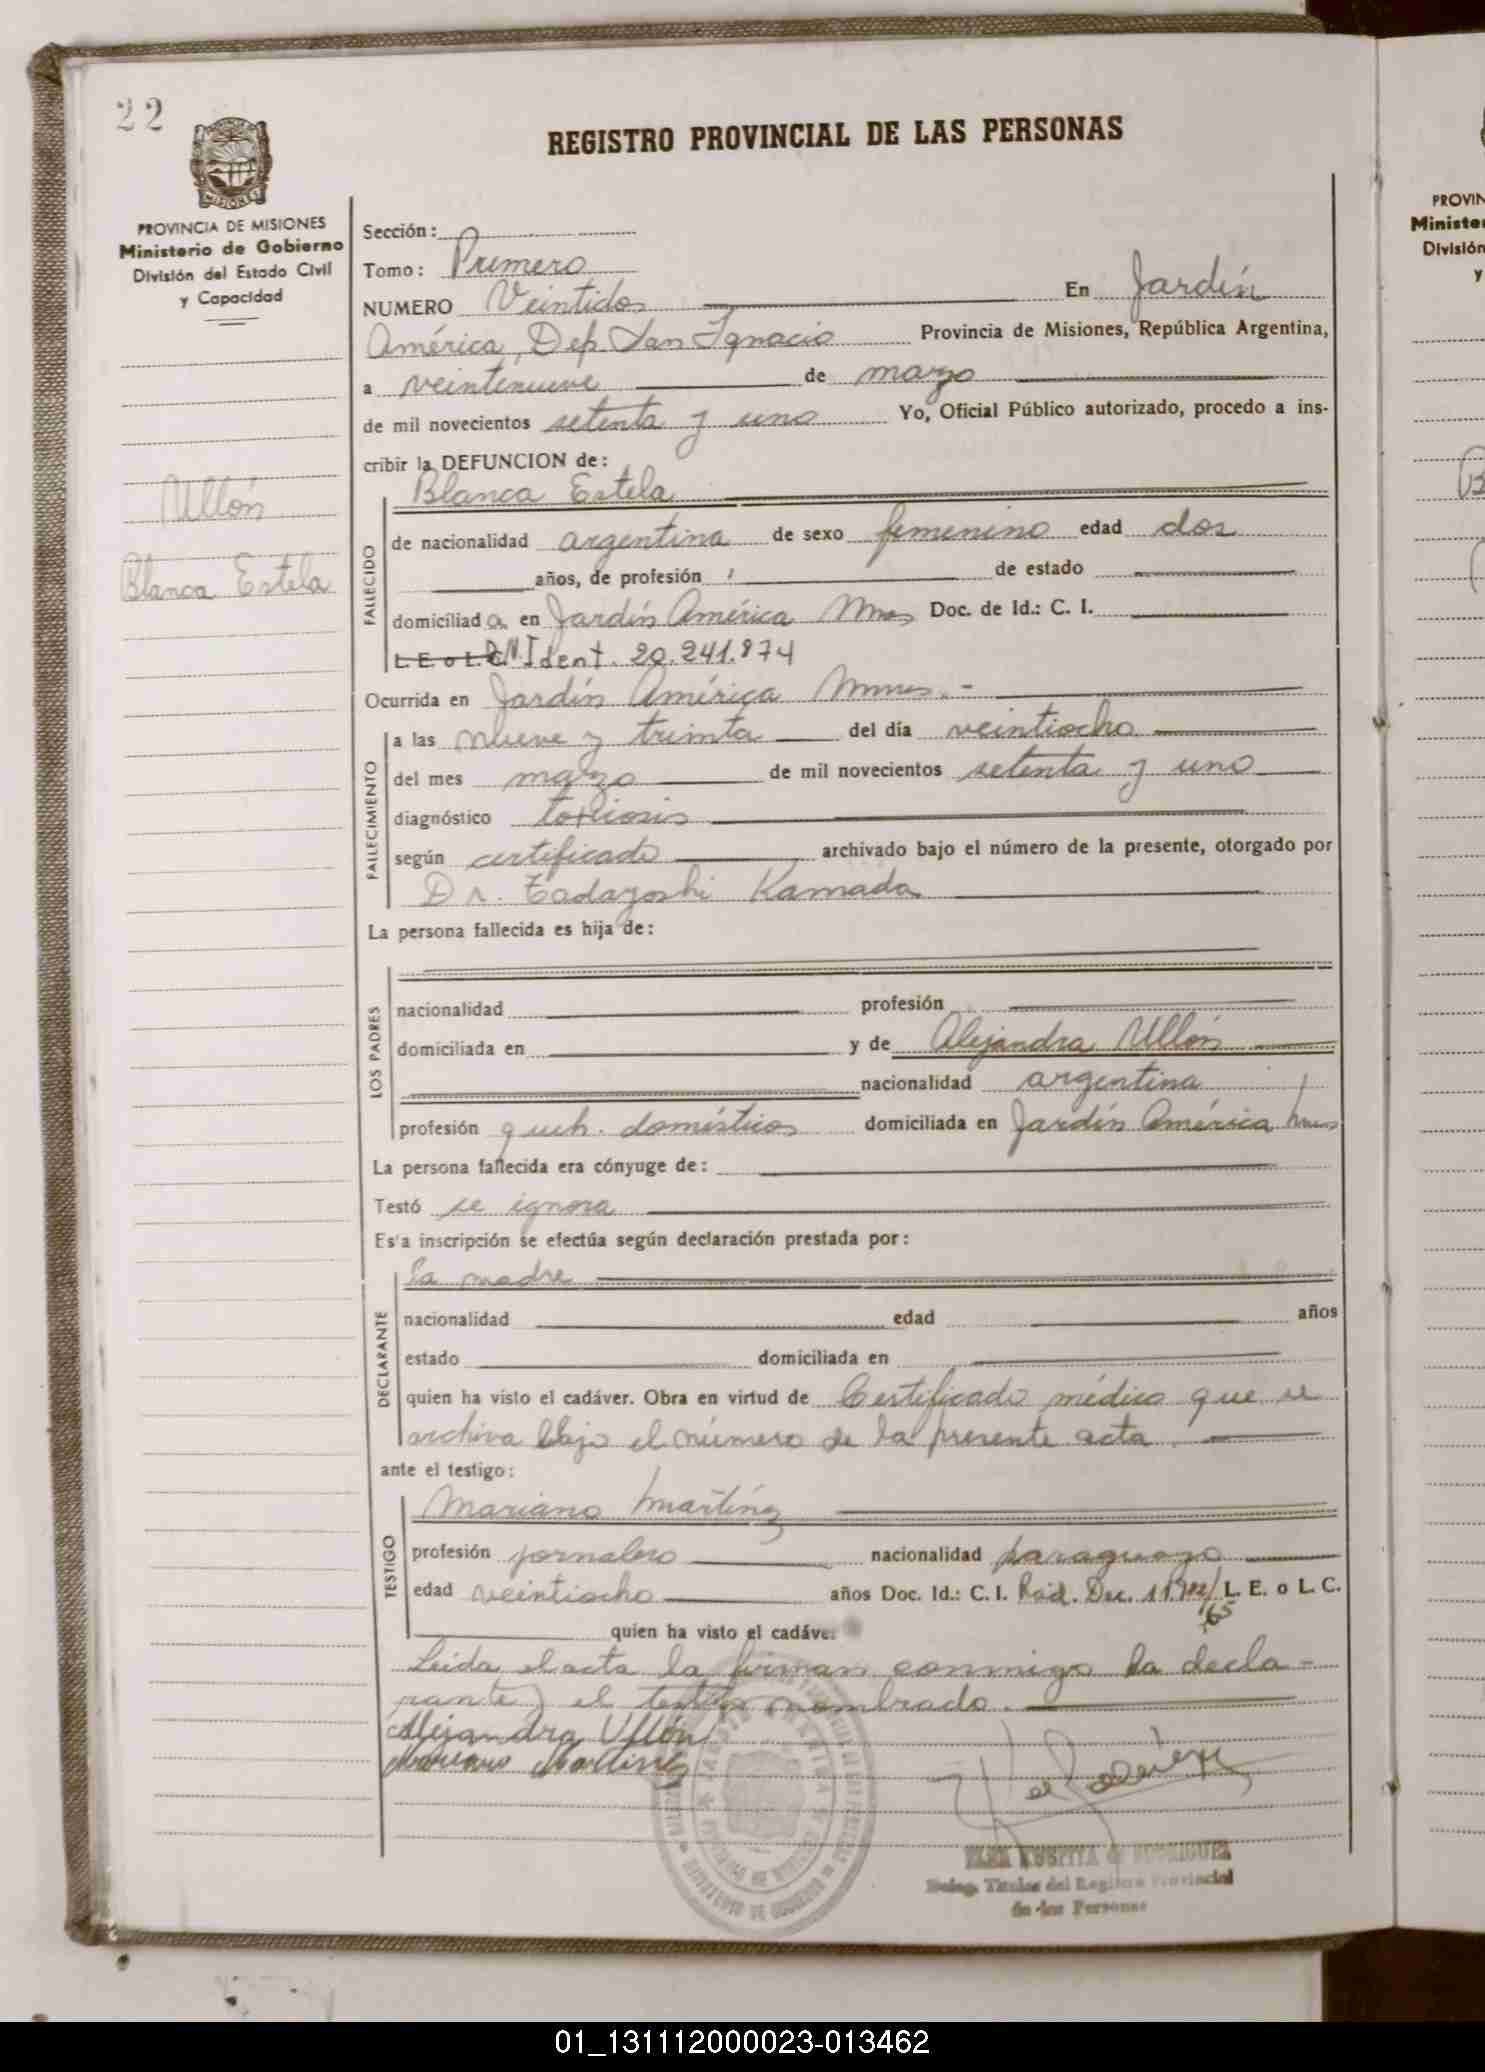 22
REGISTRO PROVINCIAL DE LAS PERSONAS
PROVINCIA DE MISIONES
Ministerio de Gobierno
División del Estado Civil
y Capacidad
Ullón
Blanca Estela
Sección:
Tomo: Primero
NUMERO Veintidos En Jardín
América, Dep San Ignacio Provincia de Misiones, República Argentina,
a veintenueve de marzo
de mil novecientos setenta y uno Yo, Oficial Público autorizado, procedo a ins-
cribir la DEFUNCION de:
Blanca Estela
FALLECIDO
de nacionalidad argentina de sexo femenino edad dos
años, de profesión de estado
domiciliad a en Jardín América Mnes Doc. de Id.: C. I.
L. E. o L. C. D.N.Ident. 20.241.874
Ocurrida en Jardín América Mnes.-
FALLECIMIENTO
a las nueve y treinta del día veintiocho
del mes marzo de mil novecientos setenta y uno
diagnóstico
según certificado archivado bajo el número de la presente, otorgado por
Dr. Tadayoshi Kamada
La persona fallecida es hija de:
LOS PADRES
nacionalidad profesión
domiciliada en y de Alejandra Ullón
nacionalidad argentina
profesión queh. domésticos domiciliada en Jardín América Mnes
La persona fallecida era cónyuge de:
Testó se ignora
Es'a inscripción se efectúa según declaración prestada por:
La madre
DECLARANTE
nacionalidad edad años
estado domiciliada en
quien ha visto el cadáver. Obra en virtud de Certificado médico que se
archiva bajo el número de la presente acta
ante el testigo:
Mariano Martínez
TESTIGO
profesión jornalero nacionalidad paraguayo
edad veintiocho años Doc. Id.: C. I. Rad. Dec. L. E. o L. C.
65
quien ha visto el cadáver
Leida el acta la firman conmigo la decla-
rante y el testigo nombrado.
Alejandra Ullón
Mariano Martinez
Deleg. Titular del Registro Provincial
de las Personas
PROVIN
Ministe
División
y
01_131112000023-013462